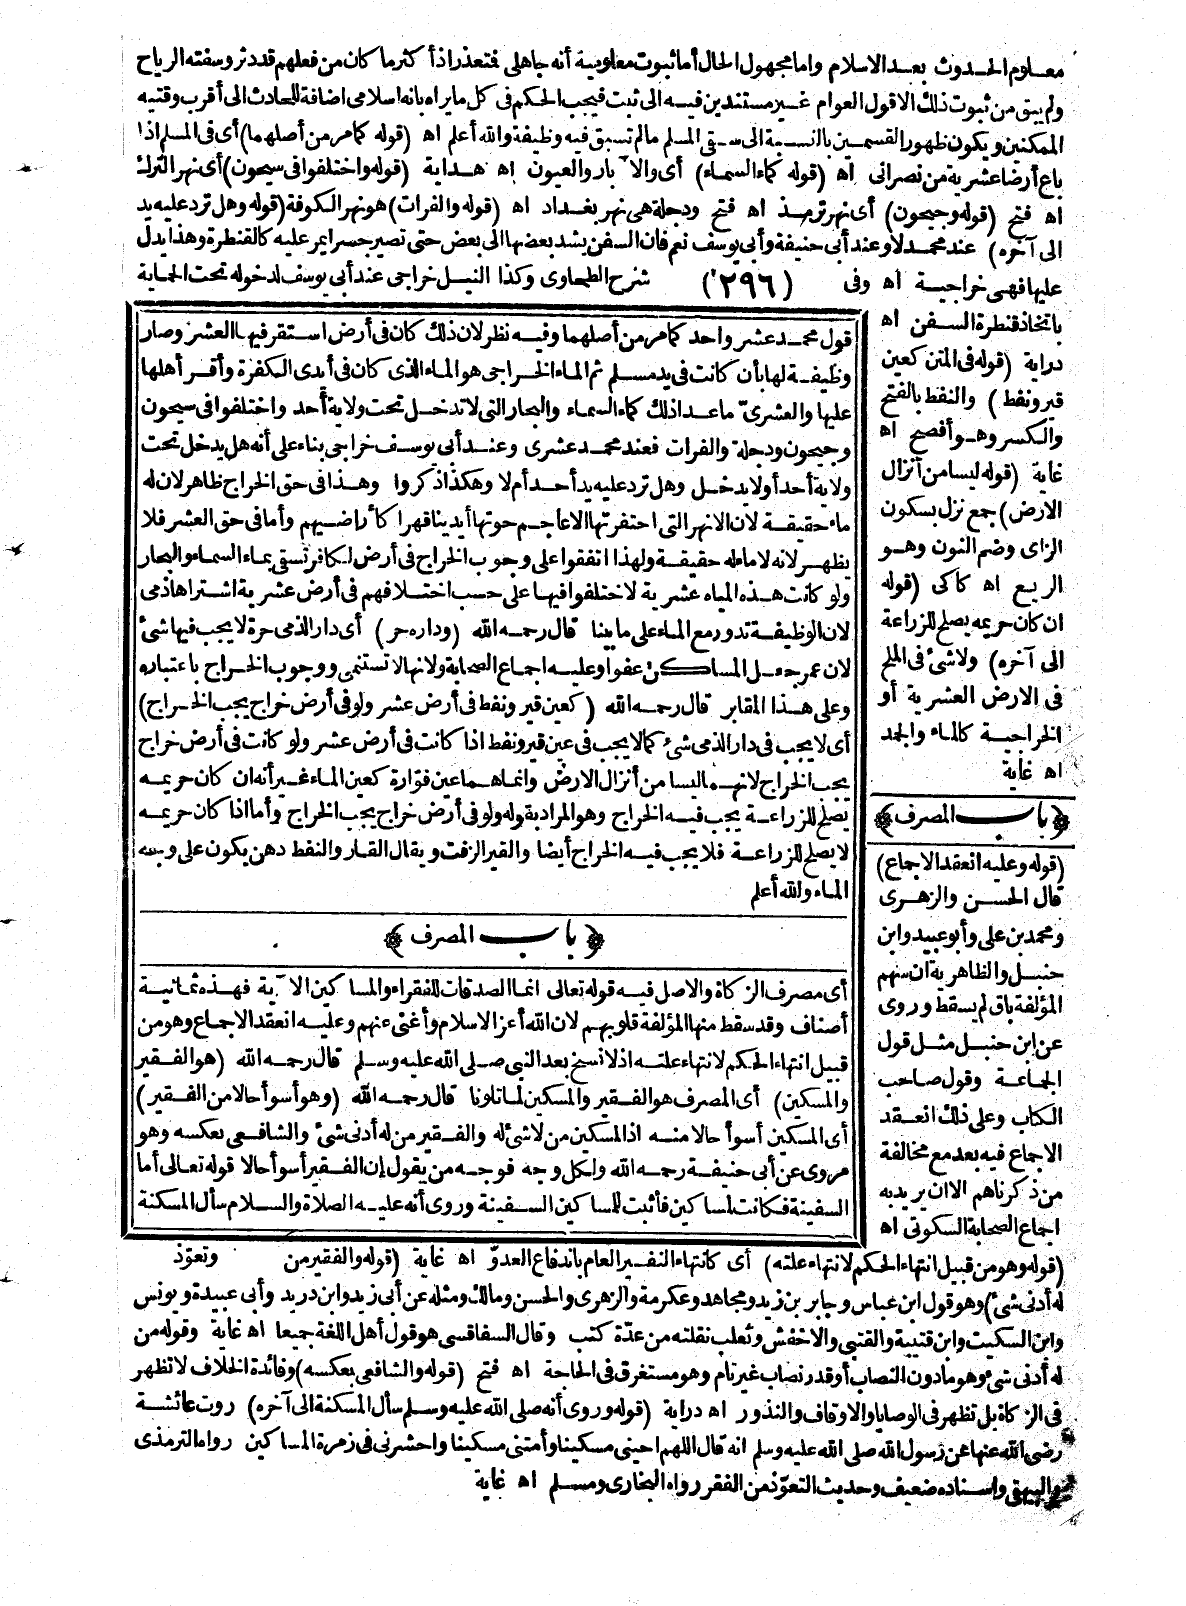 معلوم الحدوث بعد الاسلام واما مجهول الحال أما ثبوت معلومية أنه جاهلى فتعذر اذ أكثر ما كان من فعلهم قد دثر وسفته الرياح
ولم يبق من ثبوت ذلك الا قول العوام غير مستندين فيه الى ثبت فيجب الحكم فى كل ما يراه بانه اسلامى اضافة للحادث الى أقرب وقتيه
الممكنين ويكون ظهور القسمين بالنسبة الى سقى المسلم مالم تسبق فيه وظيفة والله أعلم اه (قوله كما مر من أصلهما) أى فى المسلم اذا
باع أرضا عشرية من نصرانى اه (قوله كماء السماء) أى والآبار والعيون اه هداية (قوله واختلفوا فى سيحون) أى نهر الترك
اه فتح (قوله وجيحون) أى نهر ترمذ اه فتح ودجلة هى نهر بغداد اه (قوله والفرات) هو نهر الكوفة (قوله وهل ترد عليه يد
الى آخره) عند محمد لا وعند أبى حنيفة وأبى يوسف نعم فان السفن يشد بعضها الى بعض حتى تصير جسرا يمر عليه كالقنطرة وهذا يدل
عليها فهى خراجية اه وفى (٢٩٦) شرح الطحاوى وكذا النيل خراجى عند أبى يوسف لدخوله تحت الحماية
باتخاذ قنطرة السفن اه
دراية (قوله فى المتن كعين
قير ونفط) والنفط بالفتح
والكسر وهو أفصح اه
غاية (قوله ليسا من أنزال
الارض) جمع نزل بسكون
الزاى وضم النون وهو
الريع اه كاكى (قوله
ان كان حريمه يصلح للزراعة
الى آخره) ولا شئ فى الملح
فى الارض العشرية أو
الخراجية كالماء والجمد
اه غاية
﴿باب المصرف﴾
(قوله وعليه انعقد الاجماع)
قال الحسن والزهرى
ومحمد بن على وأبو عبيد وابن
حنبل والظاهرية ان سهم
المؤلفة باق لم يسقط وروى
عن ابن حنبل مثل قول
الجماعة وقول صاحب
الكتاب وعلى ذلك انعقد
الاجماع فيه بعد مع مخالفة
من ذكرناهم الا ان يريد به
اجماع الصحابة السكوتى اه
قول محمد عشر واحد كما مر من أصلهما وفيه نظر لان ذلك كان فى أرض استقر فيها العشر وصار
وظيفة لها بأن كانت فى يد مسلم ثم الماء الخراجى هو الماء الذى كان فى أيدى الكفرة وأقر أهلها
عليها والعشرىّ ما عدا ذلك كماء السماء والبحار التى لا تدخل تحت ولاية أحد واختلفوا فى سيحون
وجيحون ودجلة والفرات فعند محمد عشرى وعند أبى يوسف خراجى بناء على أنه هل يدخل تحت
ولاية أحد أو لا يدخل وهل ترد عليه يد أحد أم لا وهكذا ذكروا وهذا فى حق الخراج ظاهر لان له
ماء حقيقة لان الانهر التى احتفرتها الاعاجم حوتها أيدينا قهرا كأراضيهم وأما فى حق العشر فلا
يظهر لانه لا ماء له حقيقة ولهذا اتفقوا على وجوب الخراج فى أرض لكافر تسقى بماء السماء والبحار
ولو كانت هذه المياه عشرية لاختلفوا فيها على حسب اختلافهم فى أرض عشرية اشتراها ذمى
لان الوظيفة تدور مع الماء على ما بينا قال رحمه الله (وداره حر) أى دار الذمى حرة لا يجب فيها شئ
لان عمر جعل المساكن عفوا وعليه اجماع الصحابة ولانها لا تستنمى ووجوب الخراج باعتباره
وعلى هذا المقابر قال رحمه الله (كعين قير ونفط فى أرض عشر ولو فى أرض خراج يجب الخراج)
أى لا يجب فى دار الذمى شئ كما لا يجب فى عين قير ونفط اذا كانت فى أرض عشر ولو كانت فى أرض خراج
يجب الخراج لانهما ليسا من أنزال الارض وانما هما عين فوّارة كعين الماء غير أنه ان كان حريمه
يصلح للزراعة يجب فيه الخراج وهو المراد بقوله ولو فى أرض خراج يجب الخراج وأما اذا كان حريمه
لا يصلح للزراعة فلا يجب فيه الخراج أيضا والقير الزفت ويقال القار والنفط دهن يكون على وجه
الماء والله أعلم
﴿باب المصرف﴾
أى مصرف الزكاة والاصل فيه قوله تعالى انما الصدقات للفقراء والمساكين الآية فهذه ثمانية
أصناف وقد سقط منها المؤلفة قلوبهم لان الله أعز الاسلام وأغنى عنهم وعليه انعقد الاجماع وهو من
قبيل انتهاء الحكم لانتهاء علته اذ لا نسخ بعد النبى صلى الله عليه وسلم قال رحمه الله (هو الفقير
والمسكين) أى المصرف هو الفقير والمسكين لما تلونا قال رحمه الله (وهو أسوأ حالا من الفقير)
أى المسكين أسوأ حالا منه اذ المسكين من لا شئ له والفقير من له أدنى شئ والشافعى بعكسه وهو
مروى عن أبى حنيفة رحمه الله ولكل وجه فوجه من يقول إن الفقير أسوأ حالا قوله تعالى أما
السفينة فكانت لمساكين فأثبت للمساكين السفينة وروى أنه عليه الصلاة والسلام سأل المسكنة
(قوله وهو من قبيل انتهاء الحكم لانتهاء علته) أى كانتهاء النفير العام باندفاع العدوّ اه غاية (قوله والفقير من وتعوّذ
له أدنى شئ) وهو قول ابن عباس وجابر بن زيد ومجاهد وعكرمة والزهرى والحسن ومالك ومثله عن أبى زيد وابن دريد وأبى عبيدة ويونس
وابن السكيت وابن قتيبة والقتبى والاخفش وثعلب نقلته من عدّة كتب وقال السفاقسى هو قول أهل اللغة جميعا اه غاية وقوله من
له أدنى شئ وهو ما دون النصاب أو قدر نصاب غير تام وهو مستغرق فى الحاجة اه فتح (قوله والشافعى بعكسه) وفائدة الخلاف لا تظهر
فى الزكاة بل تظهر فى الوصايا والاوقاف والنذور اه دراية (قوله وروى أنه صلى الله عليه وسلم سأل المسكنة الى آخره) روت عائشة
رضى الله عنها عن رسول الله صلى الله عليه وسلم انه قال اللهم احينى مسكينا وأمتنى مسكينا واحشرنى فى زمرة المساكين رواه الترمذى
والبيهقى واسناده ضعيف وحديث التعوّذ من الفقر رواه البخارى ومسلم اه غاية